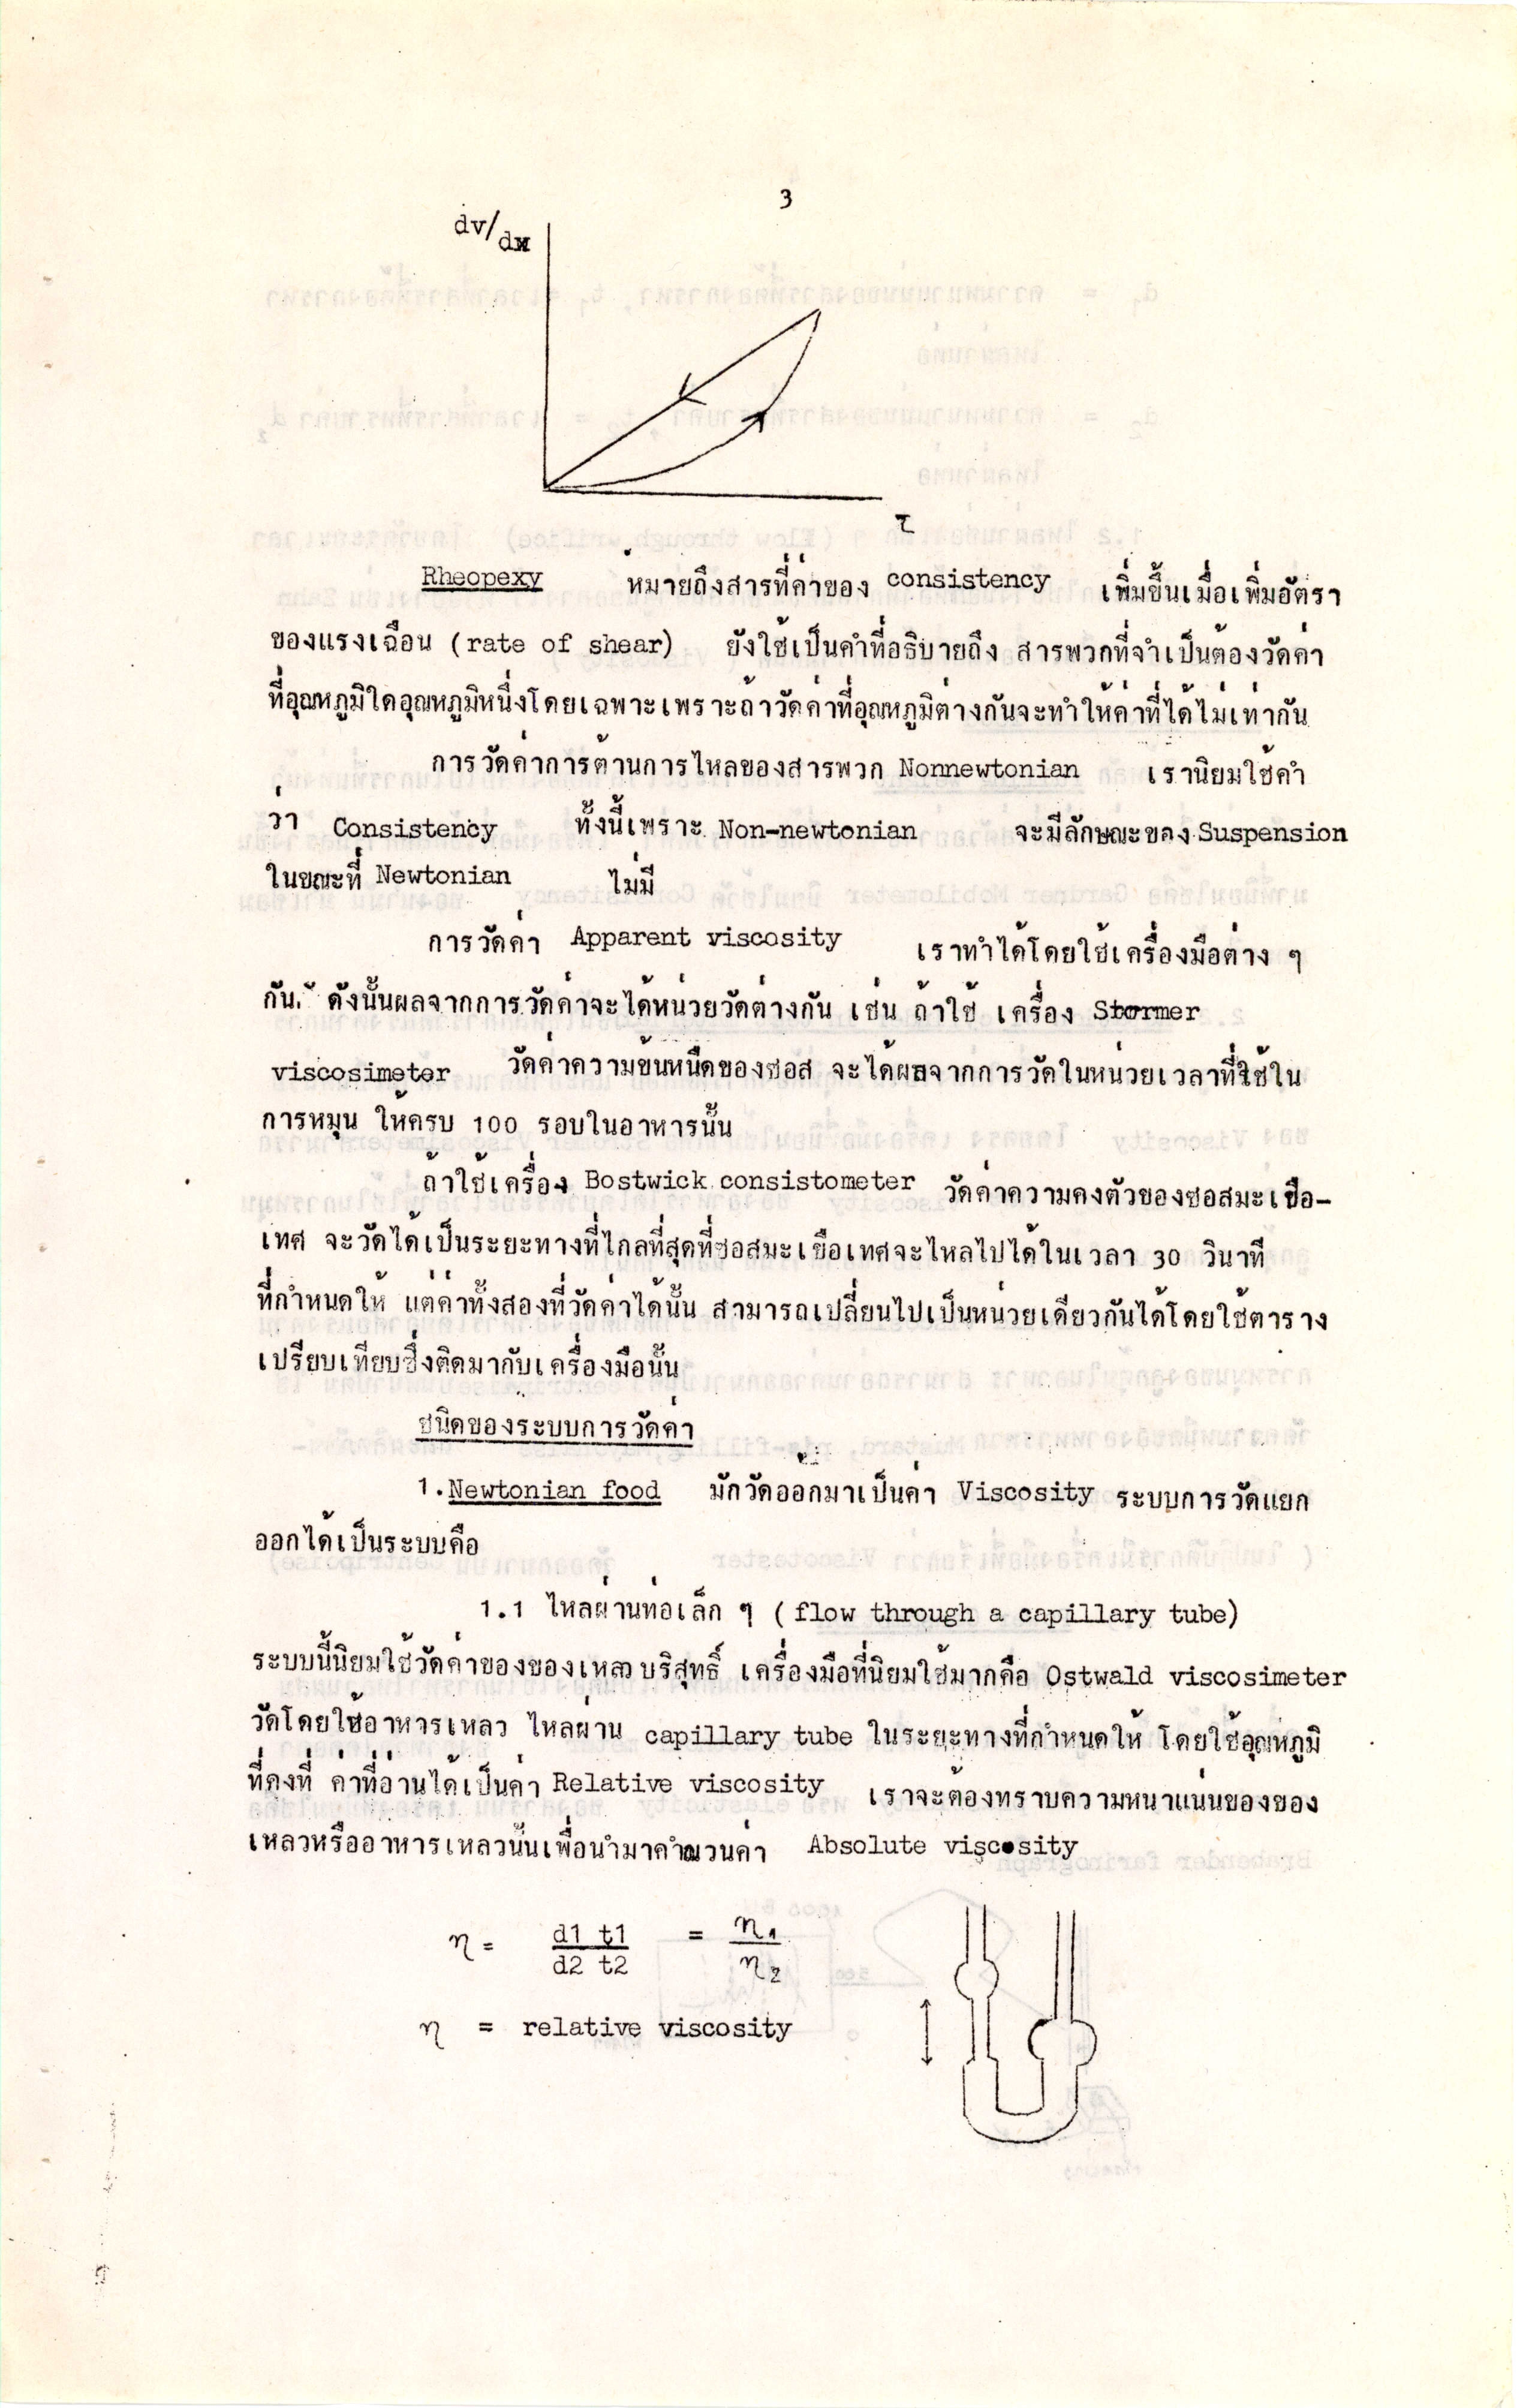 3
dv/dx
τ
Rheopexy หมายถึงสารที่ค่าของ consistency เพิ่มขึ้นเมื่อเพิ่มอัตรา
ของแรงเฉือน (rate of shear) ยังใช้เป็นคำที่อธิบายถึง สารพวกที่จำเป็นต้องวัดค่า
ที่อุณหภูมิใดอุณหภูมิหนึ่งโดยเฉพาะเพราะถ้าวัดค่าที่อุณหภูมิต่างกันจะทำให้ค่าที่ได้ไม่เท่ากัน
การวัดค่าการต้านการไหลของสารพวก Nonnewtonian เรานิยมใช้คำ
ว่า Consistency ทั้งนี้เพราะ Non-newtonian จะมีลักษณะของ Suspension
ในขณะที่ Newtonian ไม่มี
การวัดค่า Apparent viscosity เราทำได้โดยใช้เครื่องมือต่าง ๆ
กัน ดังนั้นผลจากการวัดค่าจะได้หน่วยวัดต่างกัน เช่น ถ้าใช้ เครื่อง Stormer
viscosimeter วัดค่าความข้นหนืดของซอส จะได้ผลจากการวัดในหน่วยเวลาที่ใช้ใน
การหมุน ให้ครบ 100 รอบในอาหารนั้น
ถ้าใช้เครื่อง Bostwick consistometer วัดค่าความคงตัวของซอสมะเขือ-
เทศ จะวัดได้เป็นระยะทางที่ไกลที่สุดที่ซอสมะเขือเทศจะไหลไปได้ในเวลา 30 วินาที
ที่กำหนดให้ แต่ค่าทั้งสองที่วัดค่าได้นั้น สามารถเปลี่ยนไปเป็นหน่วยเดียวกันได้โดยใช้ตาราง
เปรียบเทียบซึ่งติดมากับเครื่องมือนั้น
ชนิดของระบบการวัดค่า
1. Newtonian food มักวัดออกมาเป็นค่า Viscosity ระบบการวัดแยก
ออกได้เป็นระบบคือ
1.1 ไหลผ่านท่อเล็ก ๆ (flow through a capillary tube)
ระบบนี้นิยมใช้วัดค่าของของเหลวบริสุทธิ์ เครื่องมือที่นิยมใช้มากคือ Ostwald viscosimeter
วัดโดยใช้อาหารเหลว ไหลผ่าน capillary tube ในระยะทางที่กำหนดให้ โดยใช้อุณหภูมิ
ที่คงที่ ค่าที่อ่านได้เป็นค่า Relative viscosity เราจะต้องทราบความหนาแน่นของของ
เหลวหรืออาหารเหลวนั้นเพื่อนำมาคำนวนค่า Absolute viscosity
η = d1 t1 / d2 t2 = η1 / η2
η = relative viscosity